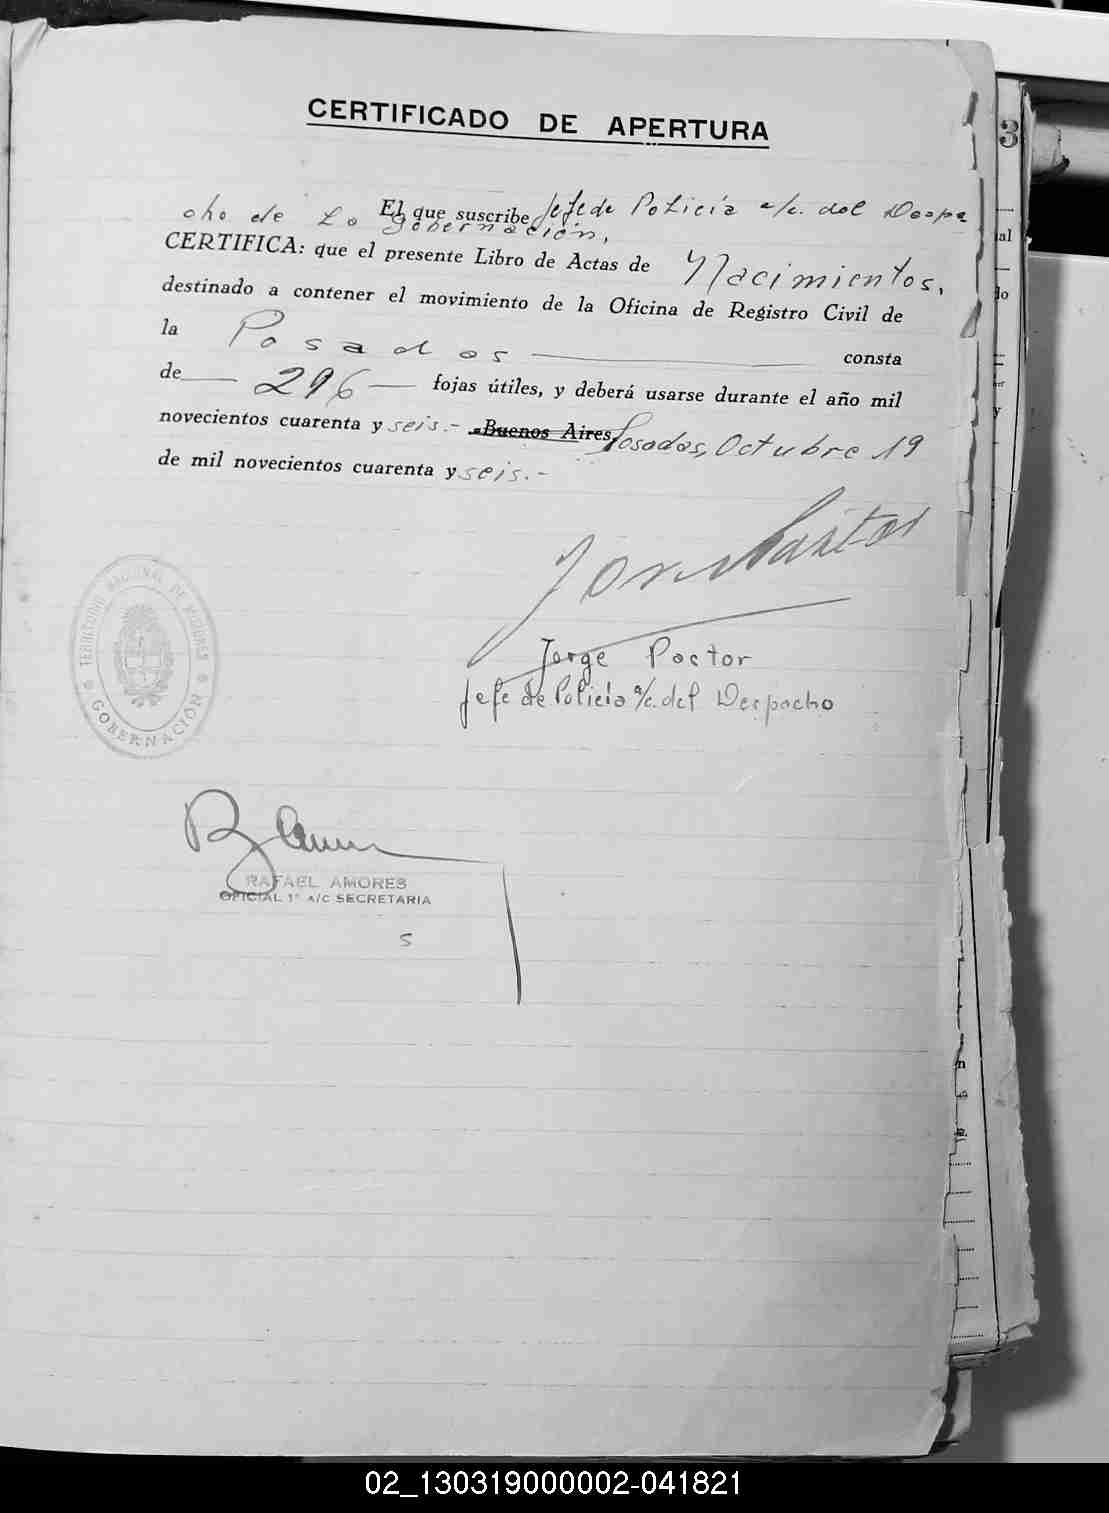 CERTIFICADO DE APERTURA
El que suscribe Jefe de Policía a/c. del Despa
cho de La Gobernación,
CERTIFICA: que el presente Libro de Actas de Nacimientos,
destinado a contener el movimiento de la Oficina de Registro Civil de
la Posadas consta
de 296 fojas útiles, y deberá usarse durante el año mil
novecientos cuarenta y seis.- Buenos Aires, Posadas, Octubre 19
de mil novecientos cuarenta y seis.-
TERRITORIO NACIONAL DE MISIONES
GOBERNACIÓN
Jorge Pastor
Jefe de Policía a/c. del Despacho
RAFAEL AMORES
OFICIAL 1° A/C SECRETARIA
S
3
al
lo
y
02_130319000002-041821